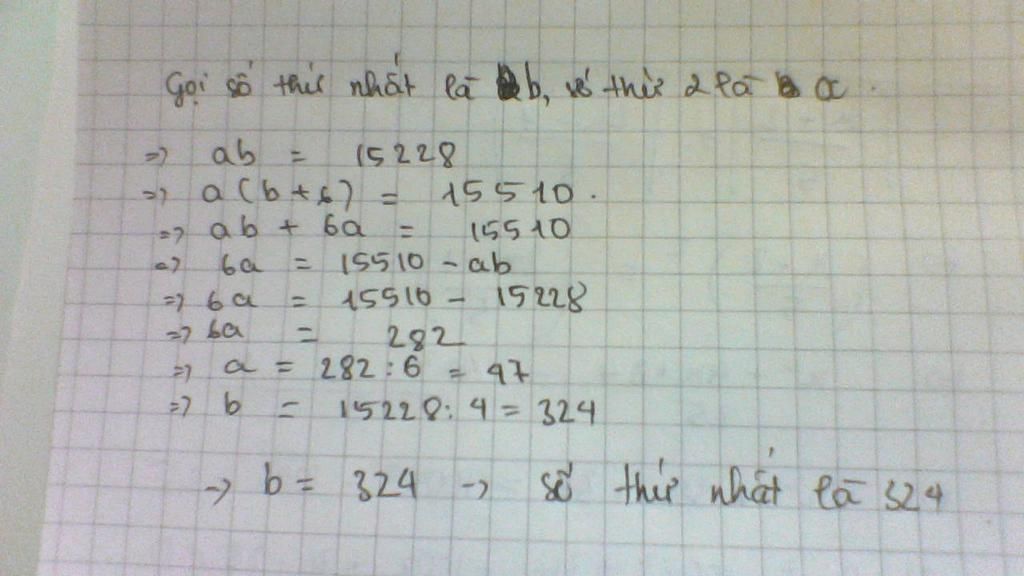 Gọi số thứ nhất là b, số thứ 2 là a.
=> ab = 15228
=> a(b+6) = 15510.
=> ab + 6a = 15510
=> 6a = 15510 - ab
=> 6a = 15510 - 15228
=> 6a = 282
=> a = 282:6 = 47
=> b = 15228:4 = 324
-> b = 324 -> số thứ nhất là 324